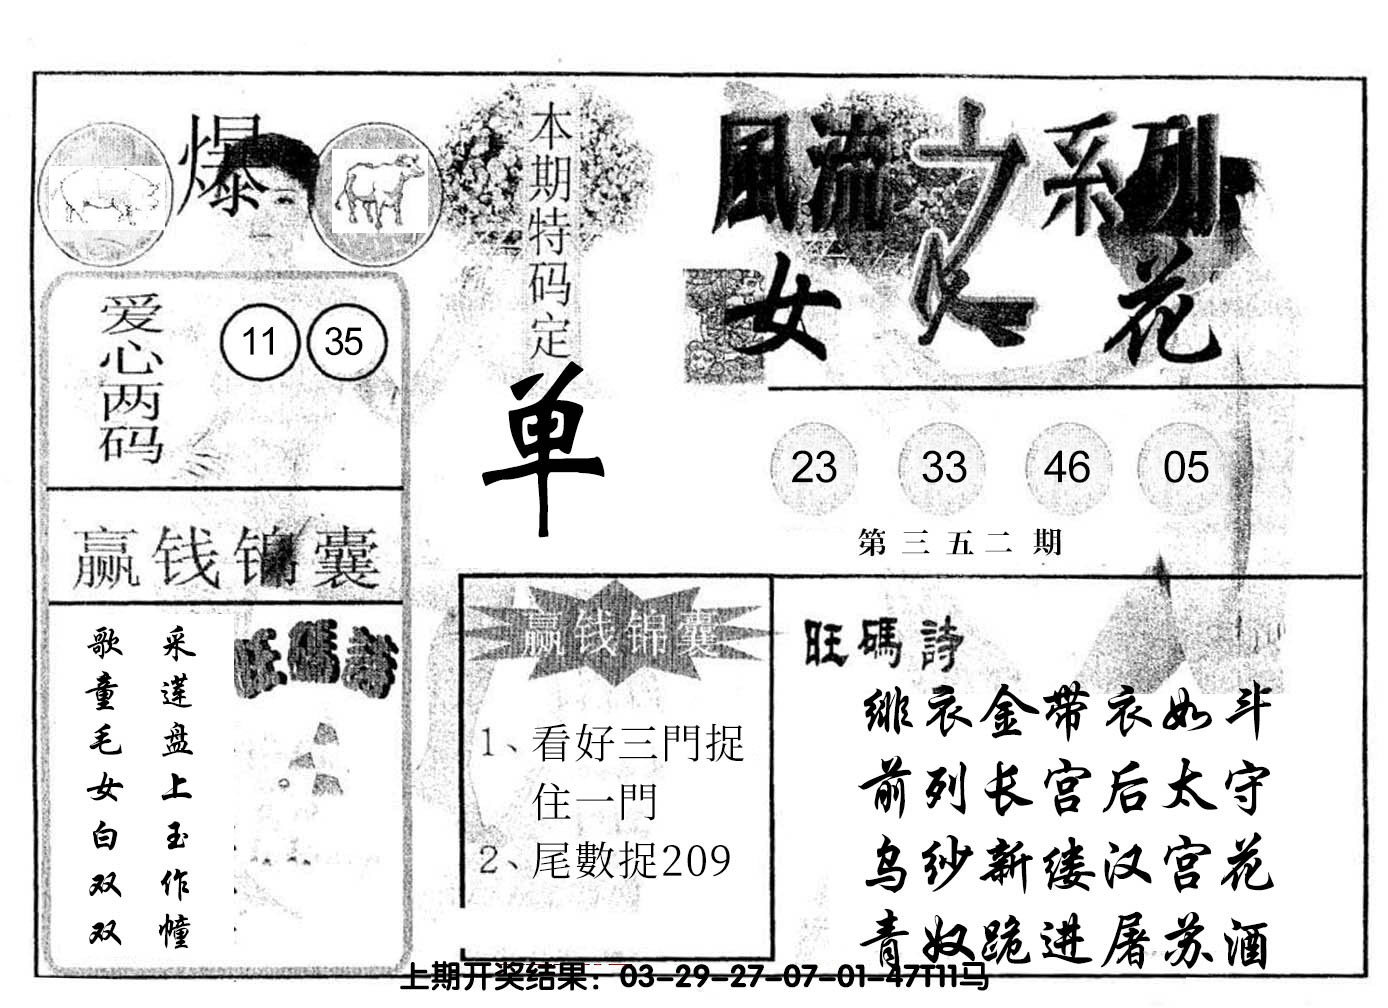 爆
本期特码定
单
風流之系列
女人花
爱心两码
11 35
23 33 46 05
第三五二期
赢钱锦囊
采莲盘上玉作幢
歌童毛女白双双
旺碼詩
赢钱锦囊
1、看好三門捉
住一門
2、尾數捉209
旺碼詩
绯衣金带衣如斗
前列长宫后太守
乌纱新缕汉宫花
青奴跪进屠苏酒
上期开奖结果：03-29-27-07-01-47T11马